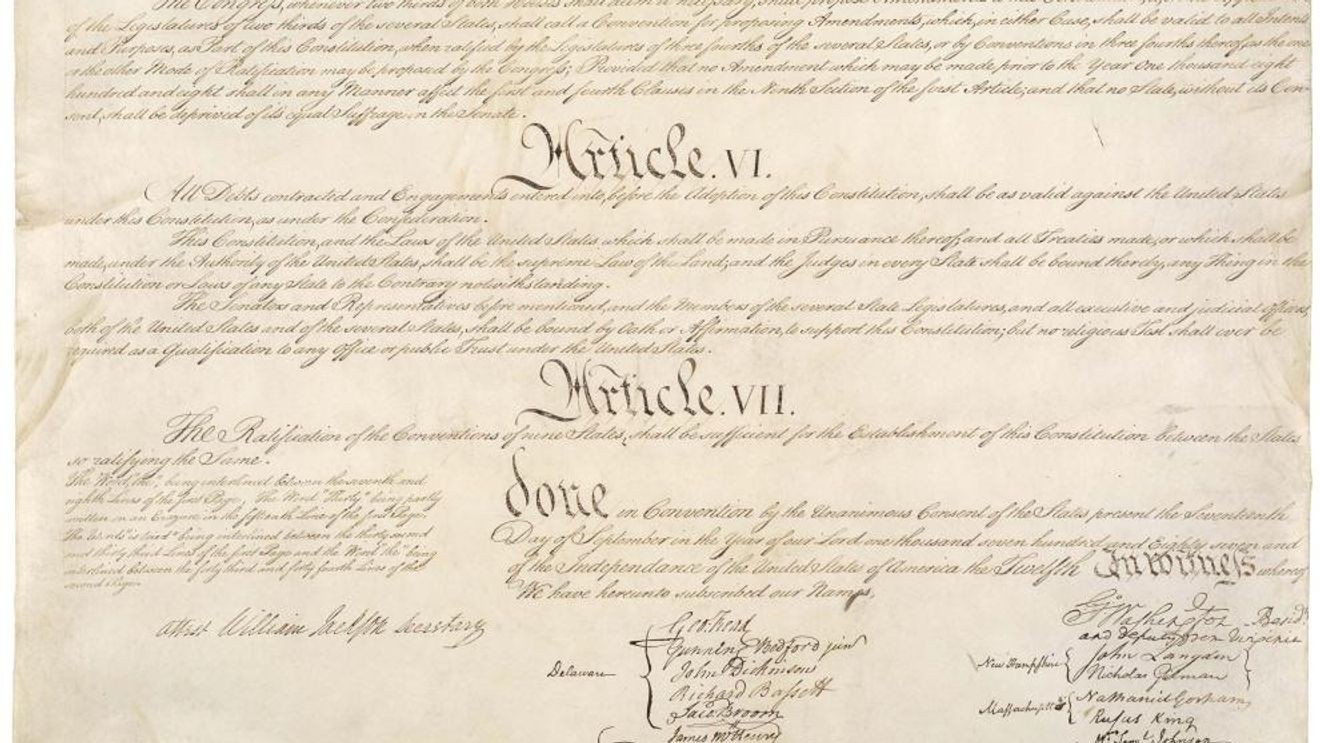 The Congress, whenever two thirds of both Houses shall deem it necessary, shall propose Amendments to this Constitution, or, on the Application
of the Legislatures of two thirds of the several States, shall call a Convention for proposing Amendments, which, in either Case, shall be valid to all Intents
and Purposes, as Part of this Constitution, when ratified by the Legislatures of three fourths of the several States, or by Conventions in three fourths thereof, as the one
or the other Mode of Ratification may be proposed by the Congress; Provided that no Amendment which may be made prior to the Year One thousand eight
hundred and eight shall in any Manner affect the first and fourth Clauses in the Ninth Section of the first Article; and that no State, without its Con-
sent, shall be deprived of its equal Suffrage in the Senate.
Article. VI.
All Debts contracted and Engagements entered into, before the Adoption of this Constitution, shall be as valid against the United States
under this Constitution, as under the Confederation.
This Constitution, and the Laws of the United States which shall be made in Pursuance thereof; and all Treaties made, or which shall be
made, under the Authority of the United States, shall be the supreme Law of the Land; and the Judges in every State shall be bound thereby, any Thing in the
Constitution or Laws of any State to the Contrary notwithstanding.
The Senators and Representatives before mentioned, and the Members of the several State Legislatures, and all executive and judicial Officers,
both of the United States and of the several States, shall be bound by Oath or Affirmation, to support this Constitution; but no religious Test shall ever be
required as a Qualification to any Office or public Trust under the United States.
Article. VII.
The Ratification of the Conventions of nine States, shall be sufficient for the Establishment of this Constitution between the States
so ratifying the Same.
The Word, "the," being interlined between the seventh and
eighth Lines of the first Page, The Word "Thirty" being partly
written on an Erazure in the fifteenth Line of the first Page,
The Words "is tried" being interlined between the thirty second
and thirty third Lines of the first Page and the Word "the" being
interlined between the forty third and forty fourth Lines of the
second Page.
done in Convention by the Unanimous Consent of the States present the Seventeenth
Day of September in the Year of our Lord one thousand seven hundred and Eighty seven and
of the Independance of the United States of America the Twelfth In witness whereof
We have hereunto subscribed our Names,
attest William Jackson Secretary
Go: Washington Presidt
and deputy from Virginia
Delaware
Geo: Read
Gunning Bedford jun
John Dickinson
Richard Bassett
Jaco: Broom
James McHenry
New Hampshire
John Langdon
Nicholas Gilman
Massachusetts
Nathaniel Gorham
Rufus King
Wm. Saml. Johnson